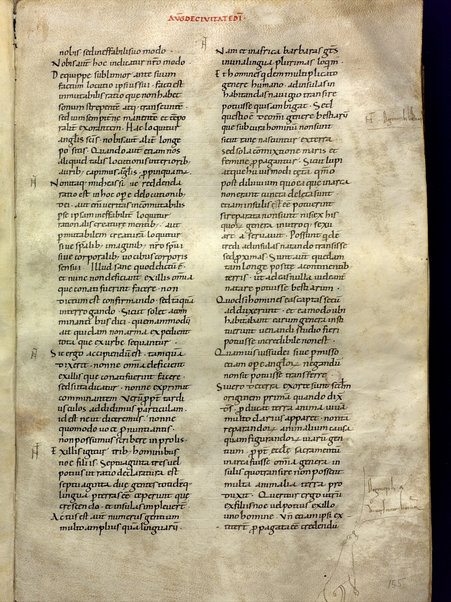 AUG DE CIVITATE DEI
nobis sed ineffabili suo modo
Nobis aut hoc indicatur nro modo
Dei quippe sublimior ante suum
factum locutio ipsius sui facti est
inmutabilis ratio quae non habet
sonum strepente atq; transeunte
sed vim sempiterne manente et tepo
raliter operantem Hac loquitur
anglis scis nobis aut aliter longe
positis Quando aut etiam nos
aliquid talis locutionis interiorib;
aurib; capimus anglis propinquamus
Non itaq; mihi assidue reddenda
ratio est in hoc opere de locutionib;
dei aut enim veritas incommutabilis
per se ipsam ineffabiliter loquitur
rationalis creature mentib; aut
per mutabilem creaturam loquitur
sive spalib; imaginib; nro spui
sive corporalib; vocibus corporis
sensui Illud sane quod dictum est
et nunc non deficient ex illis omnia
que conati fuerint facere non
dictum est confirmando sed tamqua
interrogando Sicut solet a com
minantibus dici quem ammodu
ait quidam non arma expedient
totaq; ex urbe sequantur
Sic ergo accipiendu est tamqua
dixerit nonne omnia deficient
ex illis que conati fuerint facere
sed si ita dicatur non exprimit
comminantem Verum ppt tardi
usculos addidimus particulam
id est ne ut diceremus nonne
quomodo voce pnuntiantis
non possumus scribere
Ex illis igitur trib; hominibus
noe filiis Septuaginta tres vel
potius ut ratio declaratura est
septuaginta due gentes totideq;
linguae p terras ee ceperunt que
crescendo et insulas impleverunt
Auctus est aut numerus gentium
multo amplius qua linguaru
Nam et in africa barbaras gtes
in una lingua plurimas
Et homines quidem multiplicato
genere humano ad insulas in
habitandas navigio transire
potuisse quis ambigat Sed
questio e de omi genere bestiaru
que sub cura hominu non sunt
sed sola commixtione maris et
femine ppagantur Sicut lupi
atque huiusmodi cetera quomo
post diluvium quo ea que in arca
non erant cuncta deleta sunt
etiam in insulis ee potuerint
si reparata non sunt nisi ex his
quoru genera in utroq; sexu
arca servavit Possunt quide
credi ad insulas natando transisse
sed pximas Sunt aut quedam
tam longe posite a continentib;
terris ut ad eas nulla videatur
natare potuisse bestiarum
Quod si homines eas captas secu
adduxerunt et eo modo ubi
habitabant earum genera insti
tuerunt venandi studio fieri
potuisse incredibile non est
Quamvis iussu dei sive pmisso
etiam ope anglor negandu
non sit potuisse transferri
Si vero de terra exorte sunt scdm
originem prima quando dix
ds pducat terra anima viva
multo clarius apparet non ta
reparandor animalium causa
quam figurandar variar gen
tium ppt eccle sacramentu
in arca fuisse omnia genera si in in
sulis quo transire non possent
multa animalia terra pro
duxit Queritur ergo utru
ex filiis noe vel potius ex illo
uno homine
155